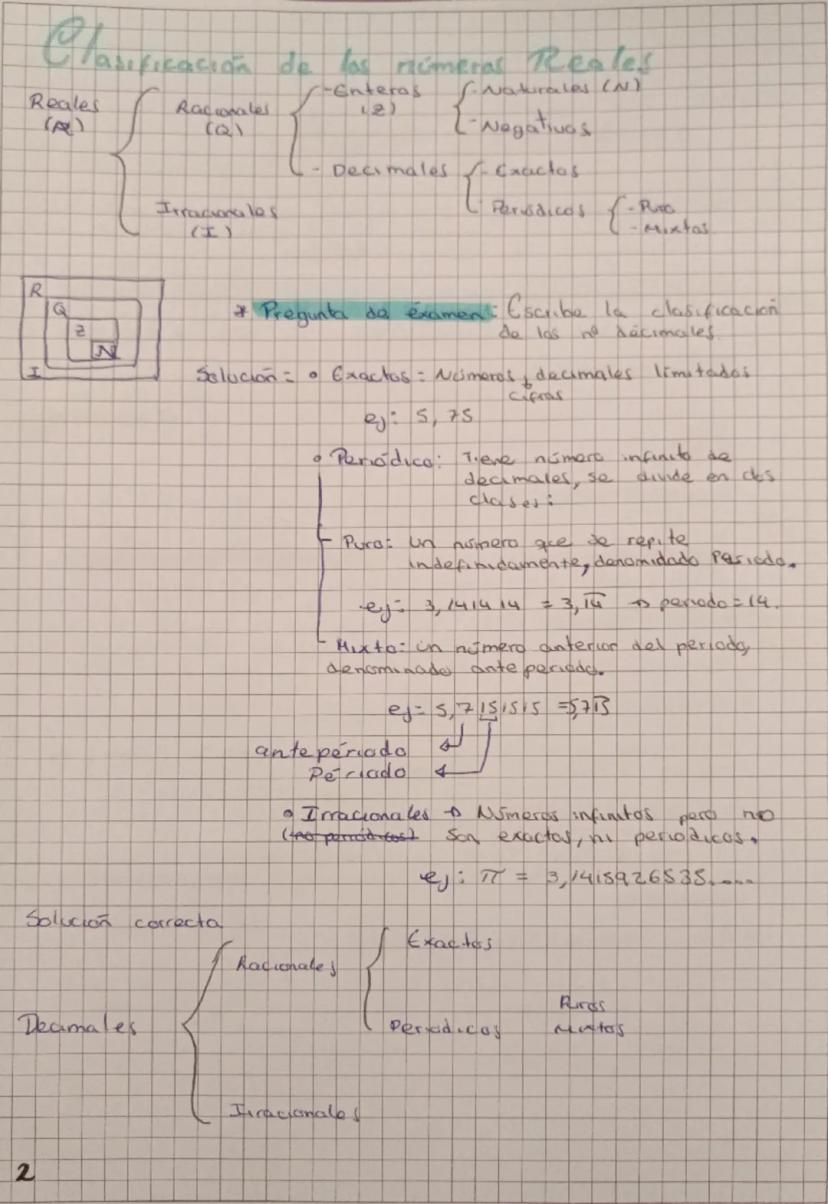 Clasificación de los números Reales
Reales Racionales -Enteros -Naturales (N)
(R) (Q) (Z) -Negativos
- Decimales - Exactos
Irracionales Periódicos -Puro
(I) -Mixtos
R
Q
Z
N
I
* Pregunta de éxamen: Escribe la clasificación
de los nº décimales
Solución = • Exactos = Números decimales limitados
cifras
ej: 5,75
• Periódico: Tiene número infinito de
decimales, se divide en dos
clases:
- Puro: un número que se repite
indefinidamente, denomidado Periodo.
ej: 3,141414 = 3,14 → periodo = 14.
- Mixto: un número anterior del periodo,
denominado anteperiodo.
ej= 5,7151515 =5,715
antepériodo
Périodo
• Irracionales → Números infinitos pero no
(no periódicos) son exactos, ni periodicos.
ej: π = 3,1415926535.....
Solución correcta
Racionales Exactos
Decimales Periódicos Puros
Mixtos
Irracionales
2